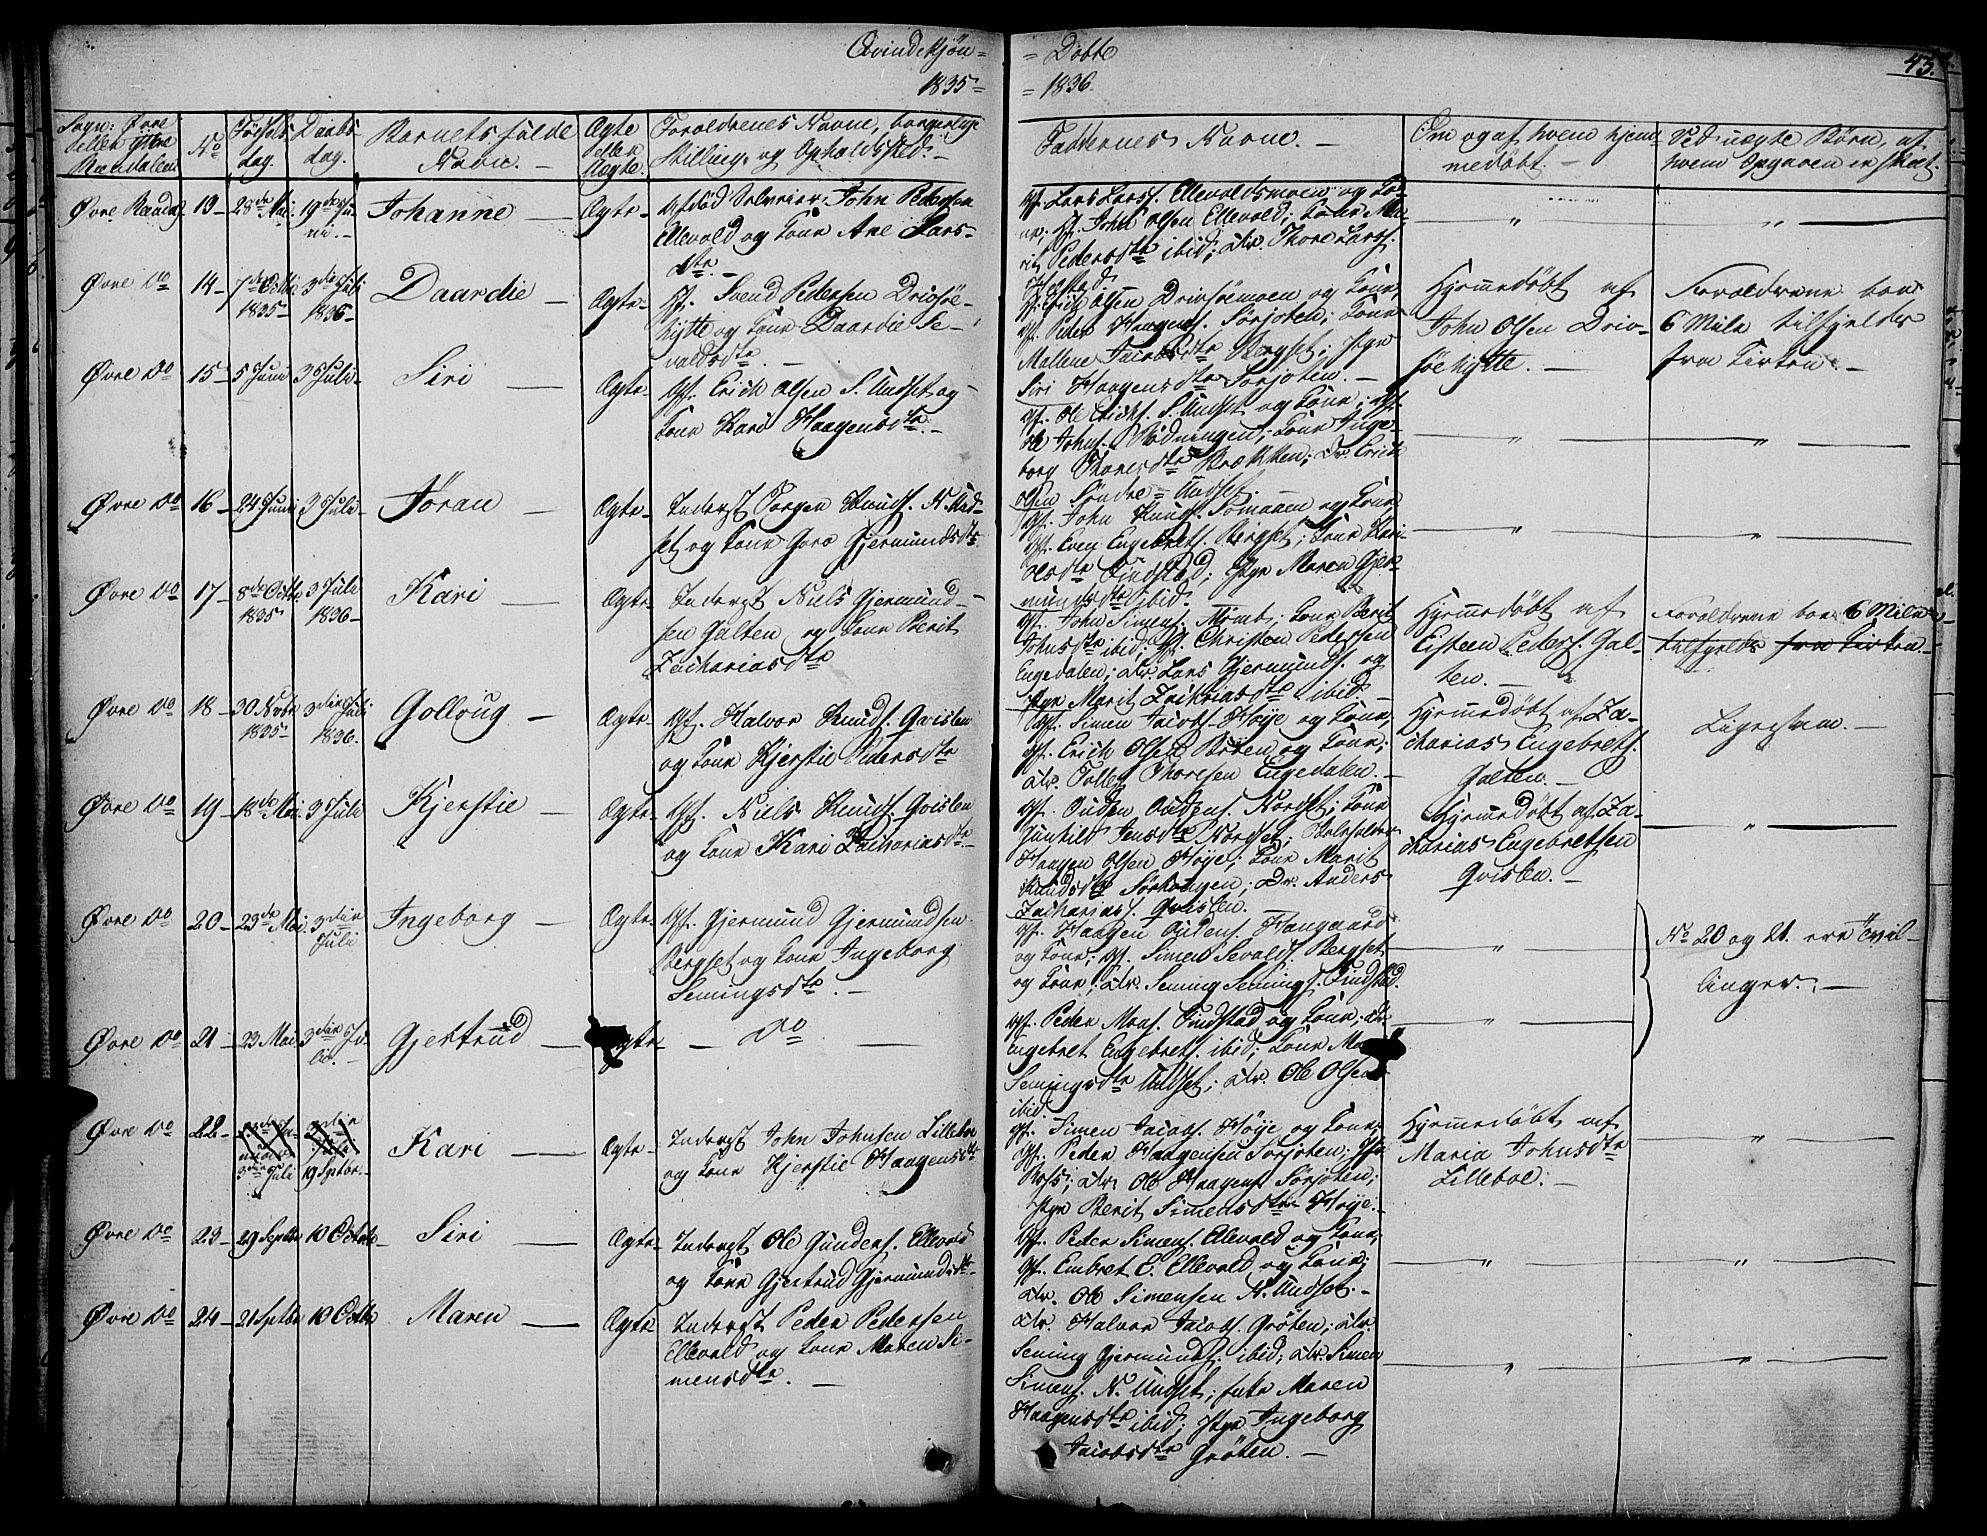 Qvindekjøn= = Døbte
1835= = 1836.
43.
Sogn: Øvre eller Ytre Rendalen
No
Fødsels dag.
Daabs dag.
Barnets fulde Navn. —
Ægte eller Uægte.
Forældrenes Navne, borgerlige Stilling, og Opholdssted. —
Faddernes Navne. —
Om og af hvem hjemmedøbt. —
Ved uægte Børn, af hvem Opgaven er skeet.
Øvre Rendal 13 — 28de Mai 19de Juni. — Johanne — Ægte —
Afdød Selveier John Pedersen
Ellevold og Kone Ane Lars-
dtr. —
Gf. Lars Larss. Ellevoldsmoen og Ko-
ne; Gf. John Olsen Ellevold; Kone Ma-
rit Pedersdtr ibid; Dr. Thore Larss.
Øvre do 14 — 7de Octbr 1835 — 3die Juli 1836 — Daardie — Ægte —
Gf. Svend Pedersen Drivsøe-
hytte og Kone Daardie Se-
valdsdtr. —
Olsen Drivsøemoen og Kone;
Gf. Peder Haagens. Sørjoten; Kone
Mallene Jacobsdtr Bergset; Pige
Siri Haagensdtr Sørjoten. —
Hjemmedøbt af
John Olsen Driv-
søehytte. —
Forældrene boe
6 Mile tilfjelds
fra Kirken. —
Øvre do 15 — 5 Juni 3 Juli — Siri — Ægte —
Gf. Erich Olsen S. Undset og
Kone Kari Haagensdtr. —
Gf. Ole Erichs. S. Undset og Kone; Gf.
Ole Johns. Kone Inge-
borg Thoresdtr Brækken; Dr. Erich
Olsen Søndre = Undset.
Øvre do 16 — 24 Juni 3 Juli — Jøran — Ægte —
Inderst Jørgen Knuds. N. Und-
set og Kone Goro Gjermundsdtr.
Gf. John Knuds. Lomoen og Kone
Gf. Even Engebrets. Bergset; Kone Kari
Olsdtr Findstad; Pige Maren Gjer-
mundsdtr ibid.
Øvre do 17 — 8de Octbr. 1835 3 Juli 1836 — Kari — Ægte —
Inderst Niels Gjermund-
sen Galten og Kone Berit
Zachariasdtr
Gf. John Simens. Kone Berit
Johnsdtr ibid; Gf. Christen Pedersen
Engedalen; Dr. Lars Gjermunds. og
Pige Marit Zachariasdtr ibid. —
Hjemmedøbt af
Eisteen Peders. Gal-
ten. —
Forældrene boe 6 Mile
tilfjelds fra Kirken. —
Øvre do 18 — 30 Novbr 1835 — 3die Juli 1836. Golloug — Ægte —
Gf. Halvor Knuds. Qvislen
og Kone Kjerstie Pedersdtr
Gf. Simen Jacobs. Høye og Kone;
Gf. Erich Olsen Berten og Kone;
Dr. Tolleg Thoresen Engedalen. —
Hjemmedøbt af Za-
charias Engebrets.
Galten. —
Ligesaa. —
Øvre do 19 — 18de Mai 3 Juli Kjerstie — Ægte —
Gf. Niels Knuds. Qvislen
og Kone Kari Zachariasdtr —
Gf. Ouden Oudens. Nordset; Kone
Gunhild Jensdtr Nordset;
Haagen Olsen Høye; Kone Marit
Knudsdtr Sørhougen; Dr. Anders
Zacharias. Qvislen.
Hjemmedøbt af Za-
charias Engebretsen
Qvislen. —
Øvre do 20 — 23de Mai. 3die Juli Ingeborg — Ægte —
Gf. Gjermund Gjermundsen
Bergset og Kone Ingeborg
Semingsdtr. —
Gf. Haagen Oudens. Haugaard
og Kone; Gf. Simen Sevalds. Bergset
og Kone; Dr. Seming Semings. Findstad.
No 20 og 21. ere Tvil-
linger. —
Øvre do 21 — 23 Mai 3die Ju-
li. — Gjertrud — Ægte — do —
Gf. Peder Mons. Findstad og Kone; Dr.
Engebret Engebrets. ibid; Kone
Semingsdtr Undset; Dr. Ole Olsen
ibid.
Øvre do 22 — 3die Juli 19 Septbr. — Kari — Ægte —
Inderst John Johnsen Lilleboe
og Kone Kjerstie Haagensdtr
Gf. Simen Jacobs. Høye og Kone;
Gf. Peder Haagensen Sørjoten;
Dr. Ole Haagens. Sørjoten;
Pige Berit Simensdtr Høye. —
Hjemmedøbt af
Maria Johnsdtr
Lilleboe. —
Øvre do 23 — 29 Septbr 10 Octbr — Siri — Ægte —
Inderst Ole Gunders. Ellevold
og Kone Gjertrud Gjermundsdtr.
Gf. Peder Simens. Ellevold og Kone;
Gf. Embret E. Ellevold og Kone;
Dr. Ole Simensen N. Undset. —
Øvre do 24 — 21 Septbr 10 Octbr Maren — Ægte —
Inderst Peder Pedersen
Ellevold og Kone Maren Si-
mensdtr. —
Dr. Halvor Jacobs. Grøten; Dr.
Seming Gjermunds. ibid; Dr. Simen
Simens. N. Undset; Enke Maren
Haagensdtr ibid; Pige Ingeborg
Jacobsdtr Grøten. —